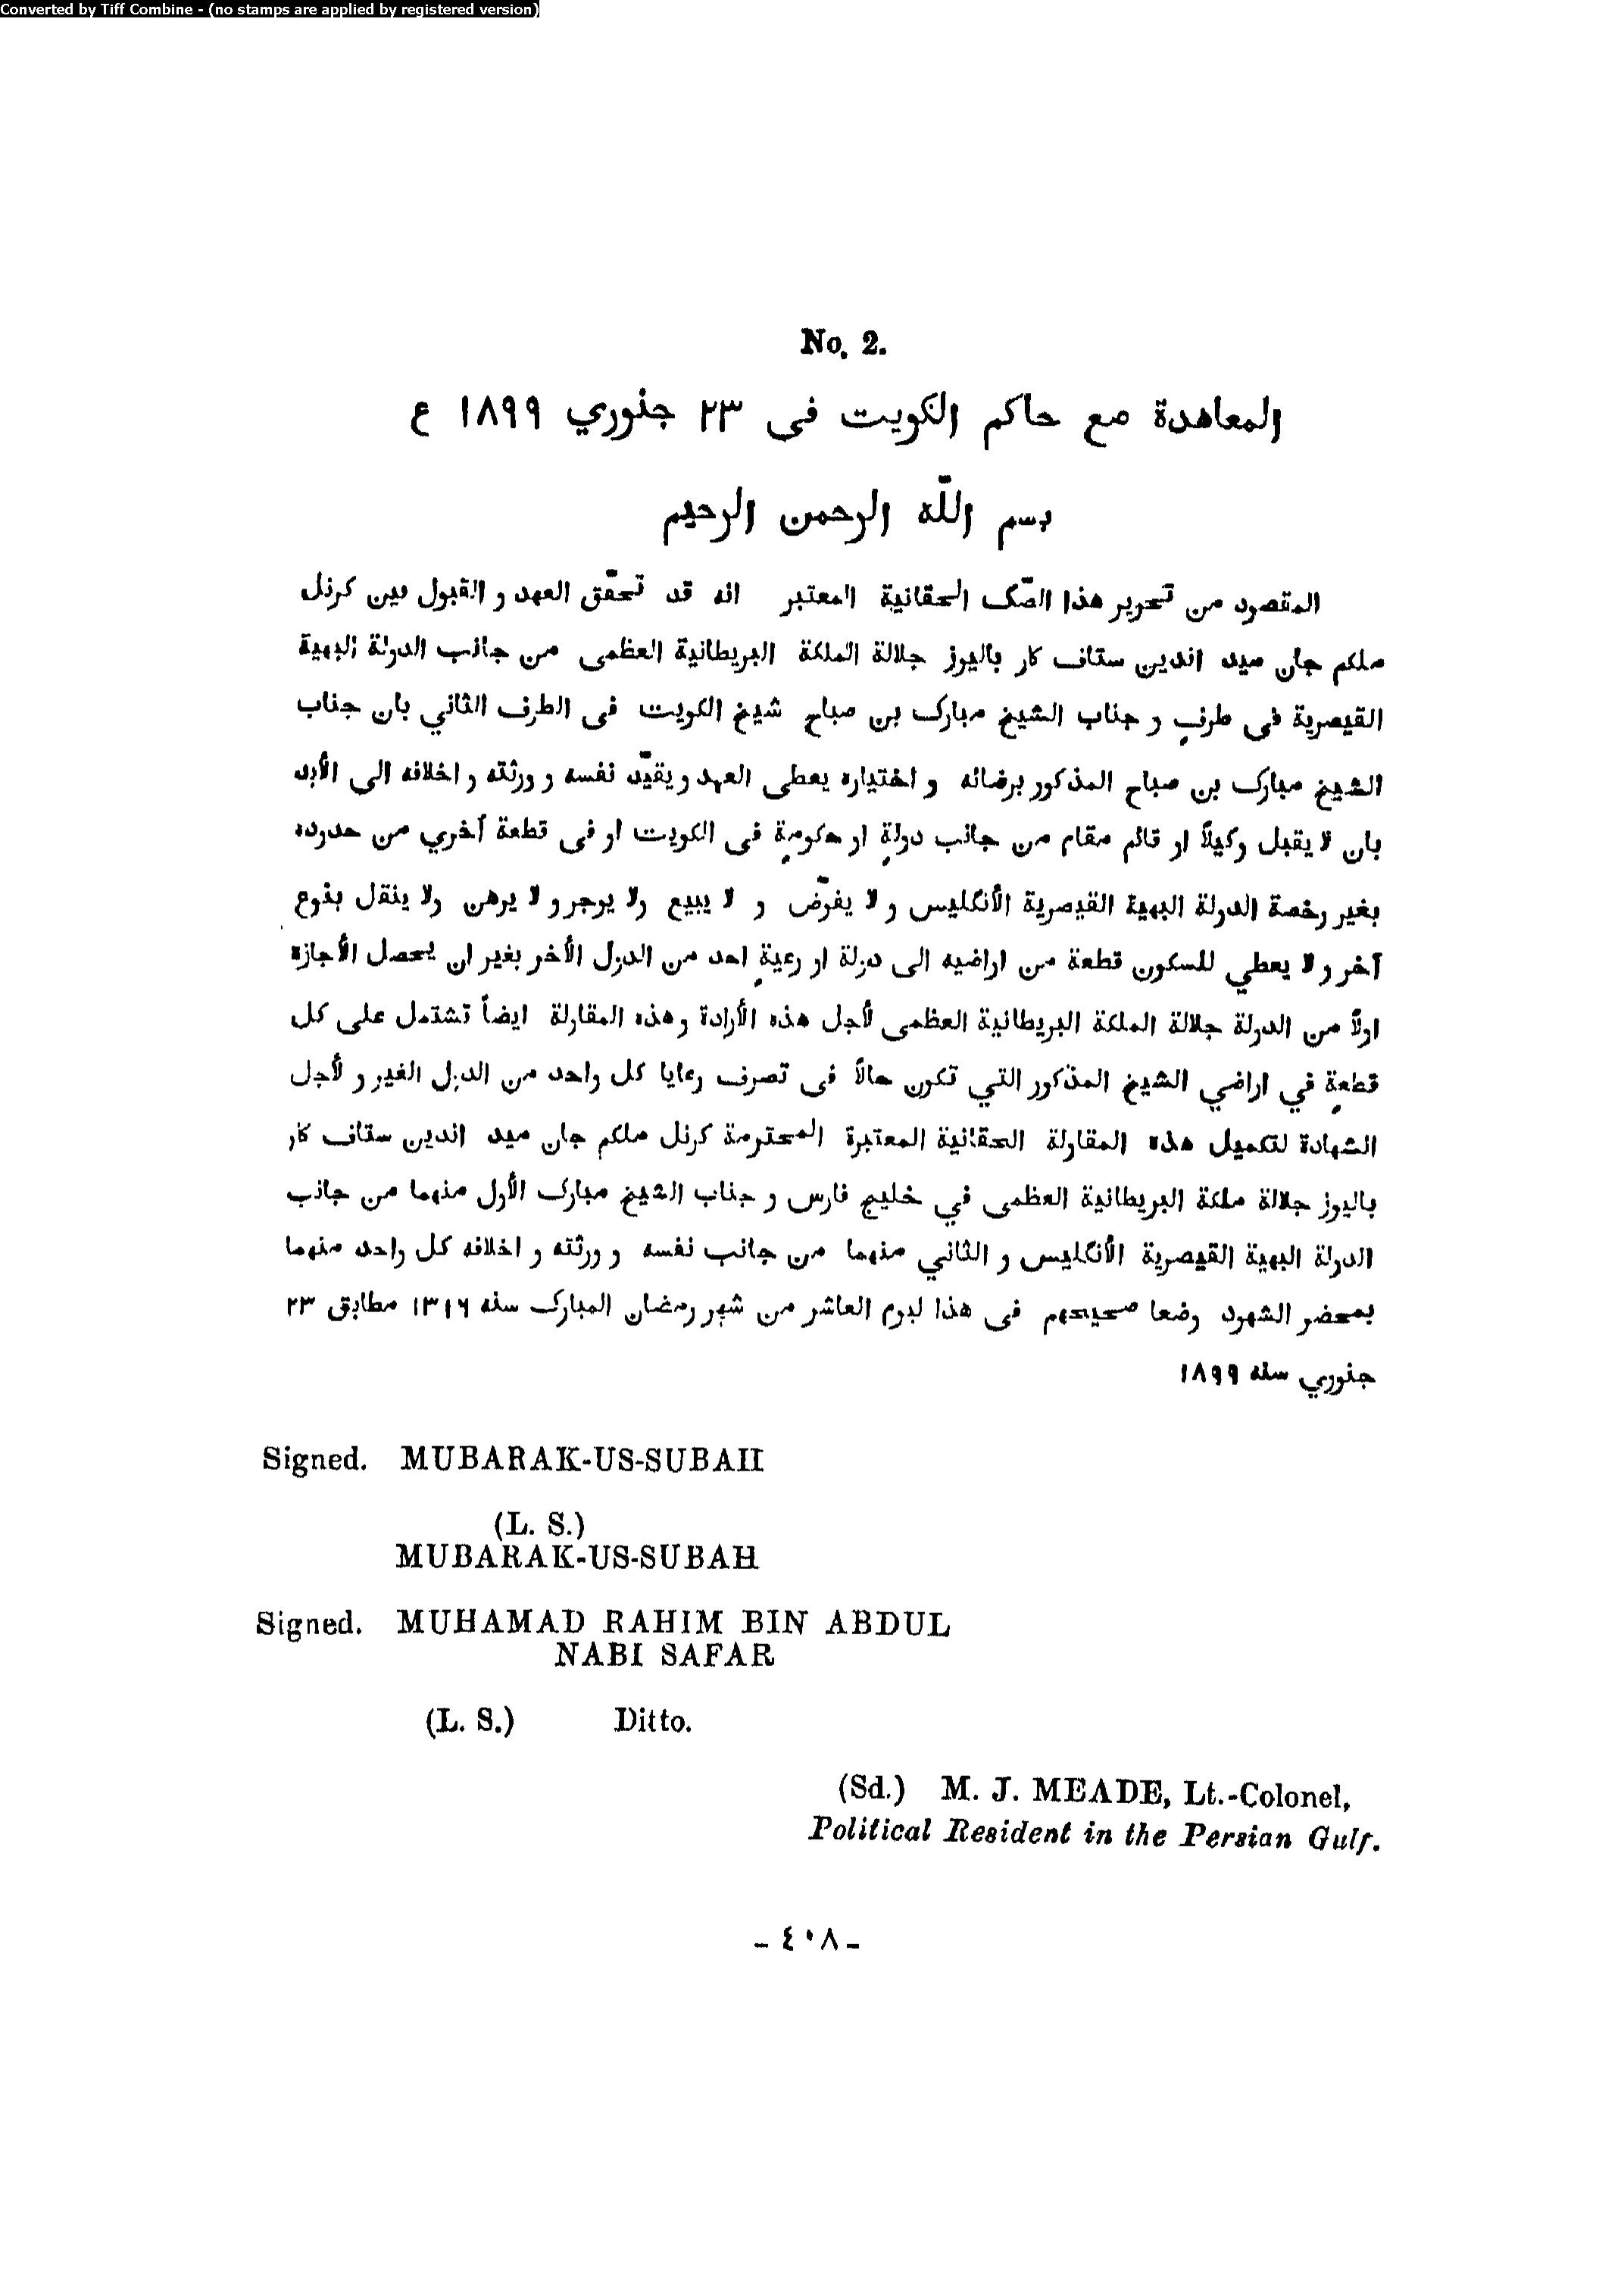 Converted by Tiff Combine - (no stamps are applied by registered version)
No. 2.
المعاهدة مع حاكم الكويت فى ٢٣ جنوري ١٨٩٩ ع
بسم اللّه الرحمن الرحيم
المقصود من تحرير هذا الصّك الحقانية المعتبر انه قد تحقّق العهد و القبول بين كرنل
ملكم جان ميد اندين ستاف كار باليوز جلالة الملكة البريطانية العظمى من جانب الدولة البهية
القيصرية فى طرفٍ و جناب الشيخ مبارك بن صباح شيخ الكويت فى الطرف الثاني بان جناب
الشيخ مبارك بن صباح المذكور برضائه و اختياره يعطى العهد و يقيّد نفسه و ورثته و اخلافه الى الأبد
بان لا يقبل وكيلاً او قائم مقام من جانب دولةٍ او حكومةٍ فى الكويت او فى قطعة آخري من حدوده
بغير رخصة الدولة البهية القيصرية الأنكليس و لا يفوّض و لا يبيع ولا يوجر و لا يرهن ولا ينقل بنوع
آخر و لا يعطي للسكون قطعة من اراضيه الى دولة او رعيةٍ احد من الدول الأخر بغير ان يحصل الأجازة
اولاً من الدولة جلالة الملكة البريطانية العظمى لأجل هذه الأرادة وهذه المقاولة ايضاً تشتمل على كل
قطعةٍ في اراضي الشيخ المذكور التي تكون حالاً فى تصرف رعايا كل واحد من الدول الغير و لأجل
الشهادة لتكميل هذه المقاولة الحقانية المعتبرة المحترمة كرنل ملكم جان ميد اندين ستاف كار
باليوز جلالة ملكة البريطانية العظمى في خليج فارس و جناب الشيخ مبارك الأول منهما من جانب
الدولة البهية القيصرية الأنكليس و الثاني منهما من جانب نفسه و ورثته و اخلافه كل واحد منهما
بمحضر الشهود وضعا صحيحهم فى هذا ليوم العاشر من شهر رمضان المبارك سنه ١٣١٦ مطابق ٢٣
جنوري سنه ١٨٩٩
Signed. MUBARAK-US-SUBAH
(L. S.)
MUBARAK-US-SUBAH
Signed. MUHAMAD RAHIM BIN ABDUL
NABI SAFAR
(L. S.) Ditto.
(Sd.) M. J. MEADE, Lt.-Colonel,
Political Resident in the Persian Gulf.
- ٤٠٨ -